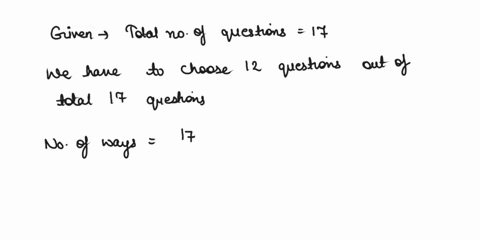 Given → Total no. of questions = 17
We have to choose 12 questions out of
total 17 questions
No. of ways = 17